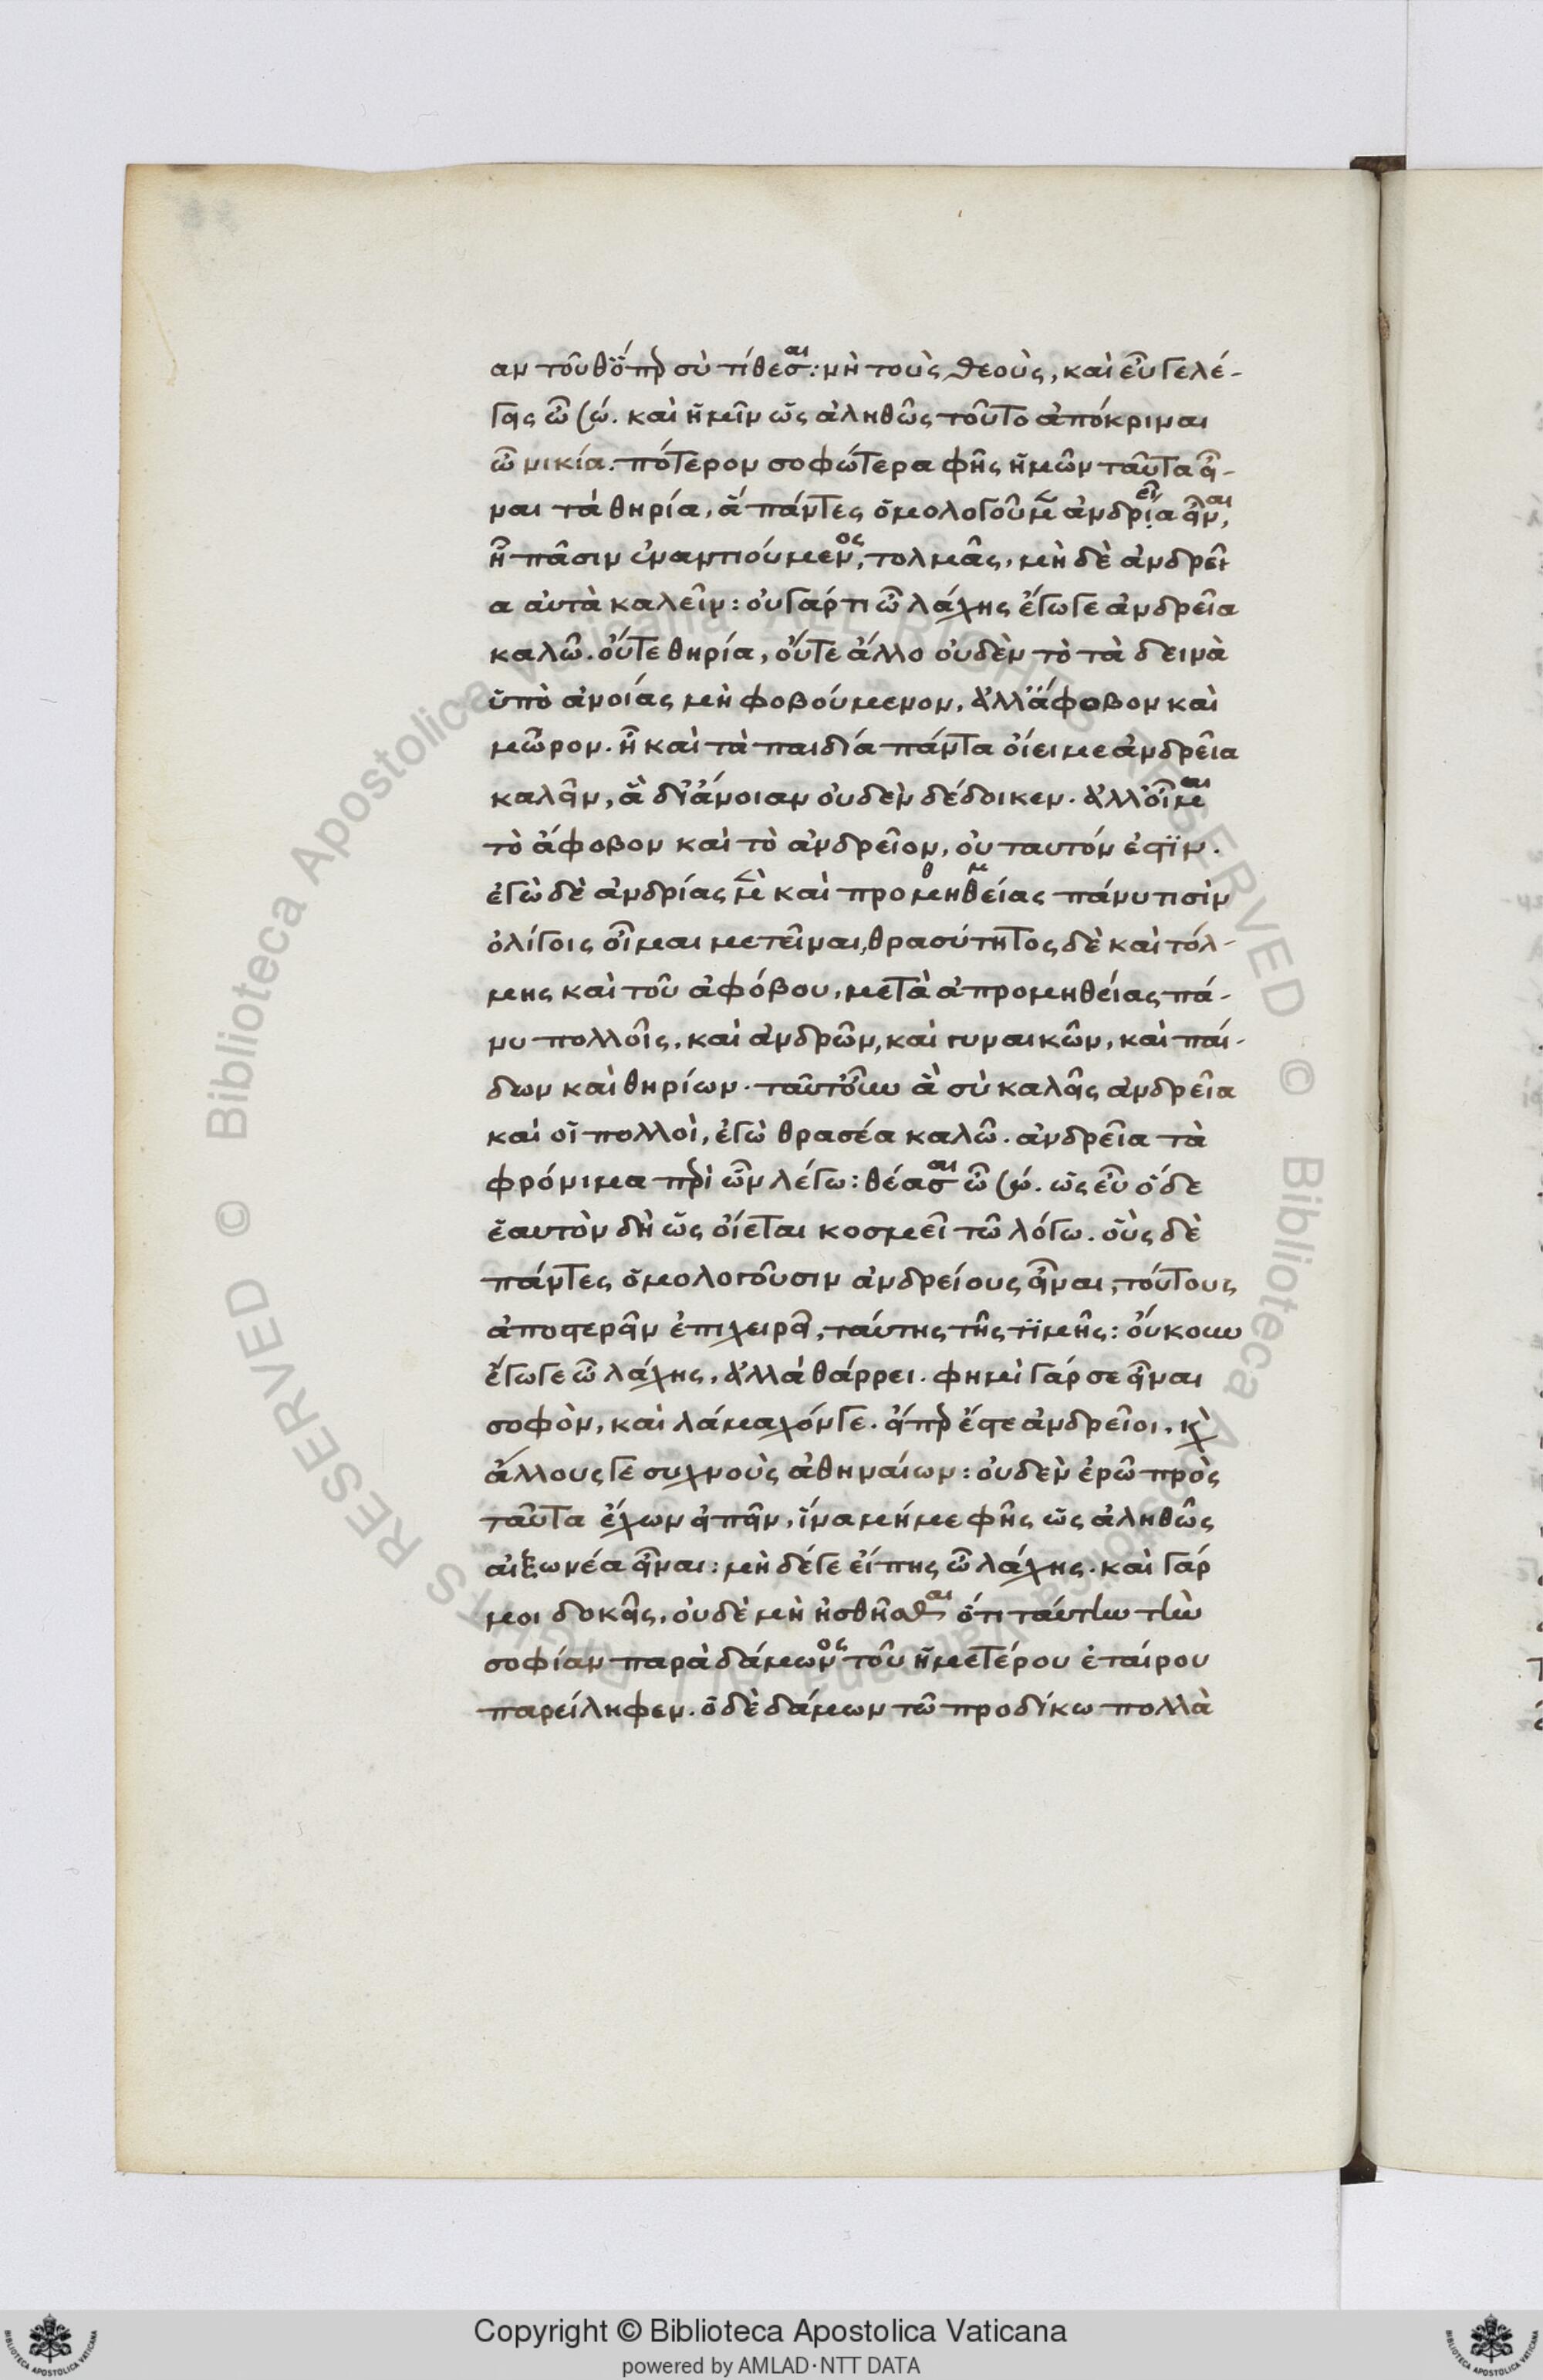 αν τοῦθ' ὅπερ σὺ τίθεσαι: μὴ τοὺς θεοὺς, καὶ εὖ γε λέ-
γεις ὦ Σώ. καὶ ἡμῖν ὡς ἀληθῶς τοῦτο ἀπόκριναι
ὦ νικία. πότερον σοφώτερα φῂς ἡμῶν ταῦτα εἶ-
ναι τὰ θηρία, ἃ πάντες ὁμολογοῦμεν ἀνδρεῖα εἶναι,
ἢ πᾶσιν ἐναντιούμενος, τολμᾶς, μὴ δὲ ἀνδρεῖ
α αὐτὰ καλεῖν: οὐ γάρ τι ὦ λάχης ἔγωγε ἀνδρεῖα
καλῶ. οὔτε θηρία, οὔτε ἄλλο οὐδὲν τὸ τὰ δεινὰ
ὑπὸ ἀνοίας μὴ φοβούμενον, ἀλλ' ἄφοβον καὶ
μῶρον. ἢ καὶ τὰ παιδία πάντα οἴει με ἀνδρεῖα
καλεῖν, ἃ δι' ἄνοιαν οὐδὲν δέδοικεν. ἀλλ' οἶμαι
τὸ ἄφοβον καὶ τὸ ἀνδρεῖον, οὐ ταυτόν ἐστὶν.
ἐγὼ δὲ ἀνδρίας μὲν καὶ προμηθείας πάνυ τισὶν
ὀλίγοις οἶμαι μετεῖναι, θρασύτητος δὲ καὶ τόλ-
μης καὶ τοῦ ἀφόβου, μετὰ ἀπρομηθείας πά-
νυ πολλοῖς, καὶ ἀνδρῶν, καὶ γυναικῶν, καὶ παί-
δων καὶ θηρίων. ταῦτ' οὖν ἃ σὺ καλεῖς ἀνδρεῖα
καὶ οἱ πολλοὶ, ἐγὼ θρασέα καλῶ. ἀνδρεῖα τὰ
φρόνιμα περὶ ὧν λέγω: θέασαι ὦ Σώ. ὡς εὖ ὅδε
ἑαυτὸν δὴ ὡς οἴεται κοσμεῖ τῶ λόγω. οὓς δὲ
πάντες ὁμολογοῦσιν ἀνδρείους εἶναι, τούτους
ἀποστερεῖν ἐπιχειρεῖ, ταύτης τῆς τιμῆς: οὔκουν
ἔγωγε ὦ λάχης, ἀλλὰ θάρρει. φημὶ γάρ σε εἶναι
σοφὸν, καὶ λάμαχόν γε. εἴπερ ἔστε ἀνδρεῖοι, καὶ
ἄλλους γε συχνοὺς ἀθηναίων: οὐδεν ἐρῶ πρὸς
ταῦτα ἔχων εἰπεῖν, ἵνα μή με φῂς ὡς ἀληθῶς
αἰξωνέα εἶναι: μὴ δέ γε εἴπης ὦ λάχης. καὶ γάρ
μοι δοκεῖς, οὐδὲ μὴ ἠσθῆσθαι ὅτι ταύτην τὴν
σοφίαν παρὰ δάμωνος τοῦ ἡμετέρου ἑταίρου
παρείληφεν. ὁ δὲ δάμων τῶ προδίκω πολλὰ
Copyright © Biblioteca Apostolica Vaticana
powered by AMLAD·NTT DATA